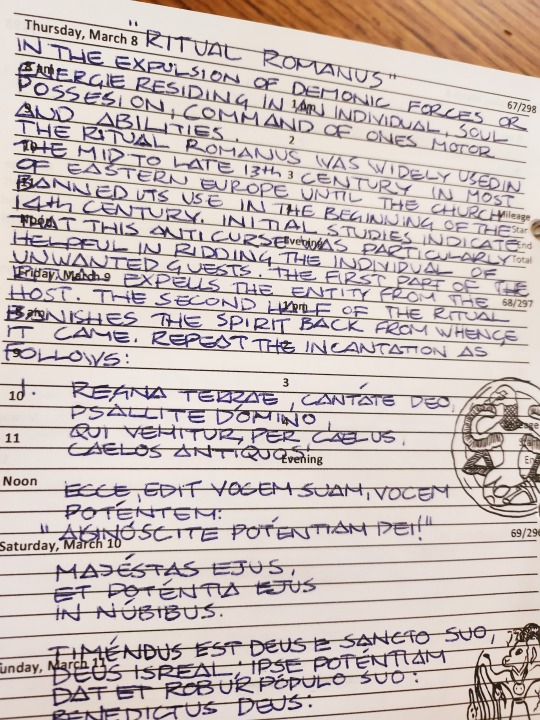 Thursday, March 8
"RITUAL ROMANUS"
67/298
IN THE EXPULSION OF DEMONIC FORCES OR
8 am
ENERGIE RESIDING IN AN INDIVIDUAL, SOUL
1 pm
POSSESION, COMMAND OF ONES MOTOR
AND ABILITIES.
2
THE RITUAL ROMANUS WAS WIDELY USED IN
10
THE MID TO LATE 13th CENTURY IN MOST
3
OF EASTERN EUROPE UNTIL THE CHURCH
11
BANNED ITS USE IN THE BEGINNING OF THE
Mileage
14th CENTURY. INITIAL STUDIES INDICATE
Star
Noon
THAT THIS ANTI CURSE WAS PARTICULARLY
Evening
End
HELPFUL IN RIDDING THE INDIVIDUAL OF
Total
UNWANTED GUESTS. THE FIRST PART OF THE
Friday, March 9
EXPELLS THE ENTITY FROM THE
68/297
HOST. THE SECOND HALF OF THE RITUAL
1 pm
8 am
BANISHES THE SPIRIT BACK FROM WHENCE
IT CAME. REPEAT THE INCANTATION AS
2
9
FOLLOWS:
3
10
1. REGNA TERRAE, CANTÁTE DEO,
PSALLITE DOMINO,
11
QUI VEHITUR, PER CAELUS,
CAELOS ANTIQUOS!
Evening
Noon
ECCE, EDIT VOCEM SUAM, VOCEM
POTÉNTEM:
"AGINÓSCITE POTÉNTIAM DEI!"
69/296
Saturday, March 10
MAJÉSTAS EJUS,
ET POTÉNTIA EJUS
IN NÚBIBUS.
TIMÉNDUS EST DEUS E SANCTO SUO,
Sunday, March 11
DEUS ISREAL; IPSE POTÉNTIAM
DAT ET ROBUR PÓPULO SUO:
BENEDICTUS DEUS: